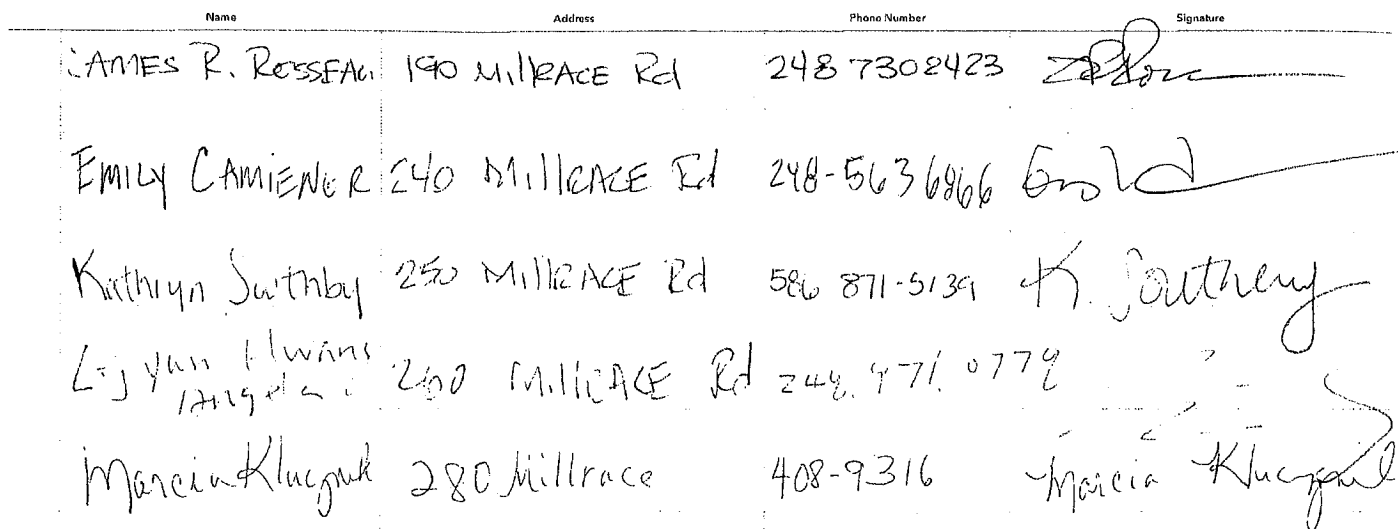 Name Address Phone Number Signature
JAMES R. ROSSEAU 190 MillRACE Rd 248 7308423
EMILY CAMIENER 240 MillRACE Rd 248-563 6866
Kathryn Southby 250 MillRACE Rd 586 871-5139 K. Southby
260 MillRACE Rd 248.971.0779
Marcia Kluczynk 280 Millrace 408-9316 Marcia